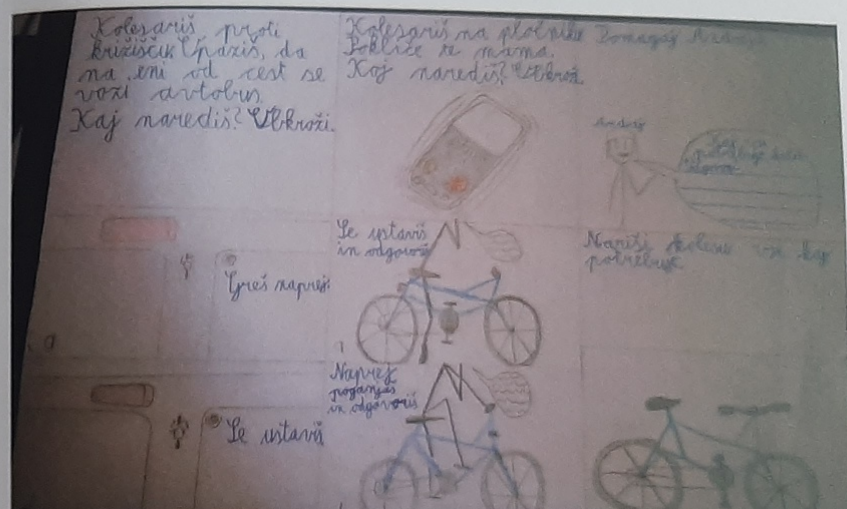 Kolesariš proti
križišču. Opaziš, da
na eni od cest se
vozi avtobus.
Kaj narediš? Obkroži.
Greš naprej.
Se ustaviš
Kolesariš na pločniku
Pokliče te mama.
Kaj narediš? Obkroži.
Se ustaviš
in odgovoriš
Naprej
poganjaš
in odgovoriš
Pomagaj Andreju
Andrej
Nariši kolesu vse kar
potrebuje